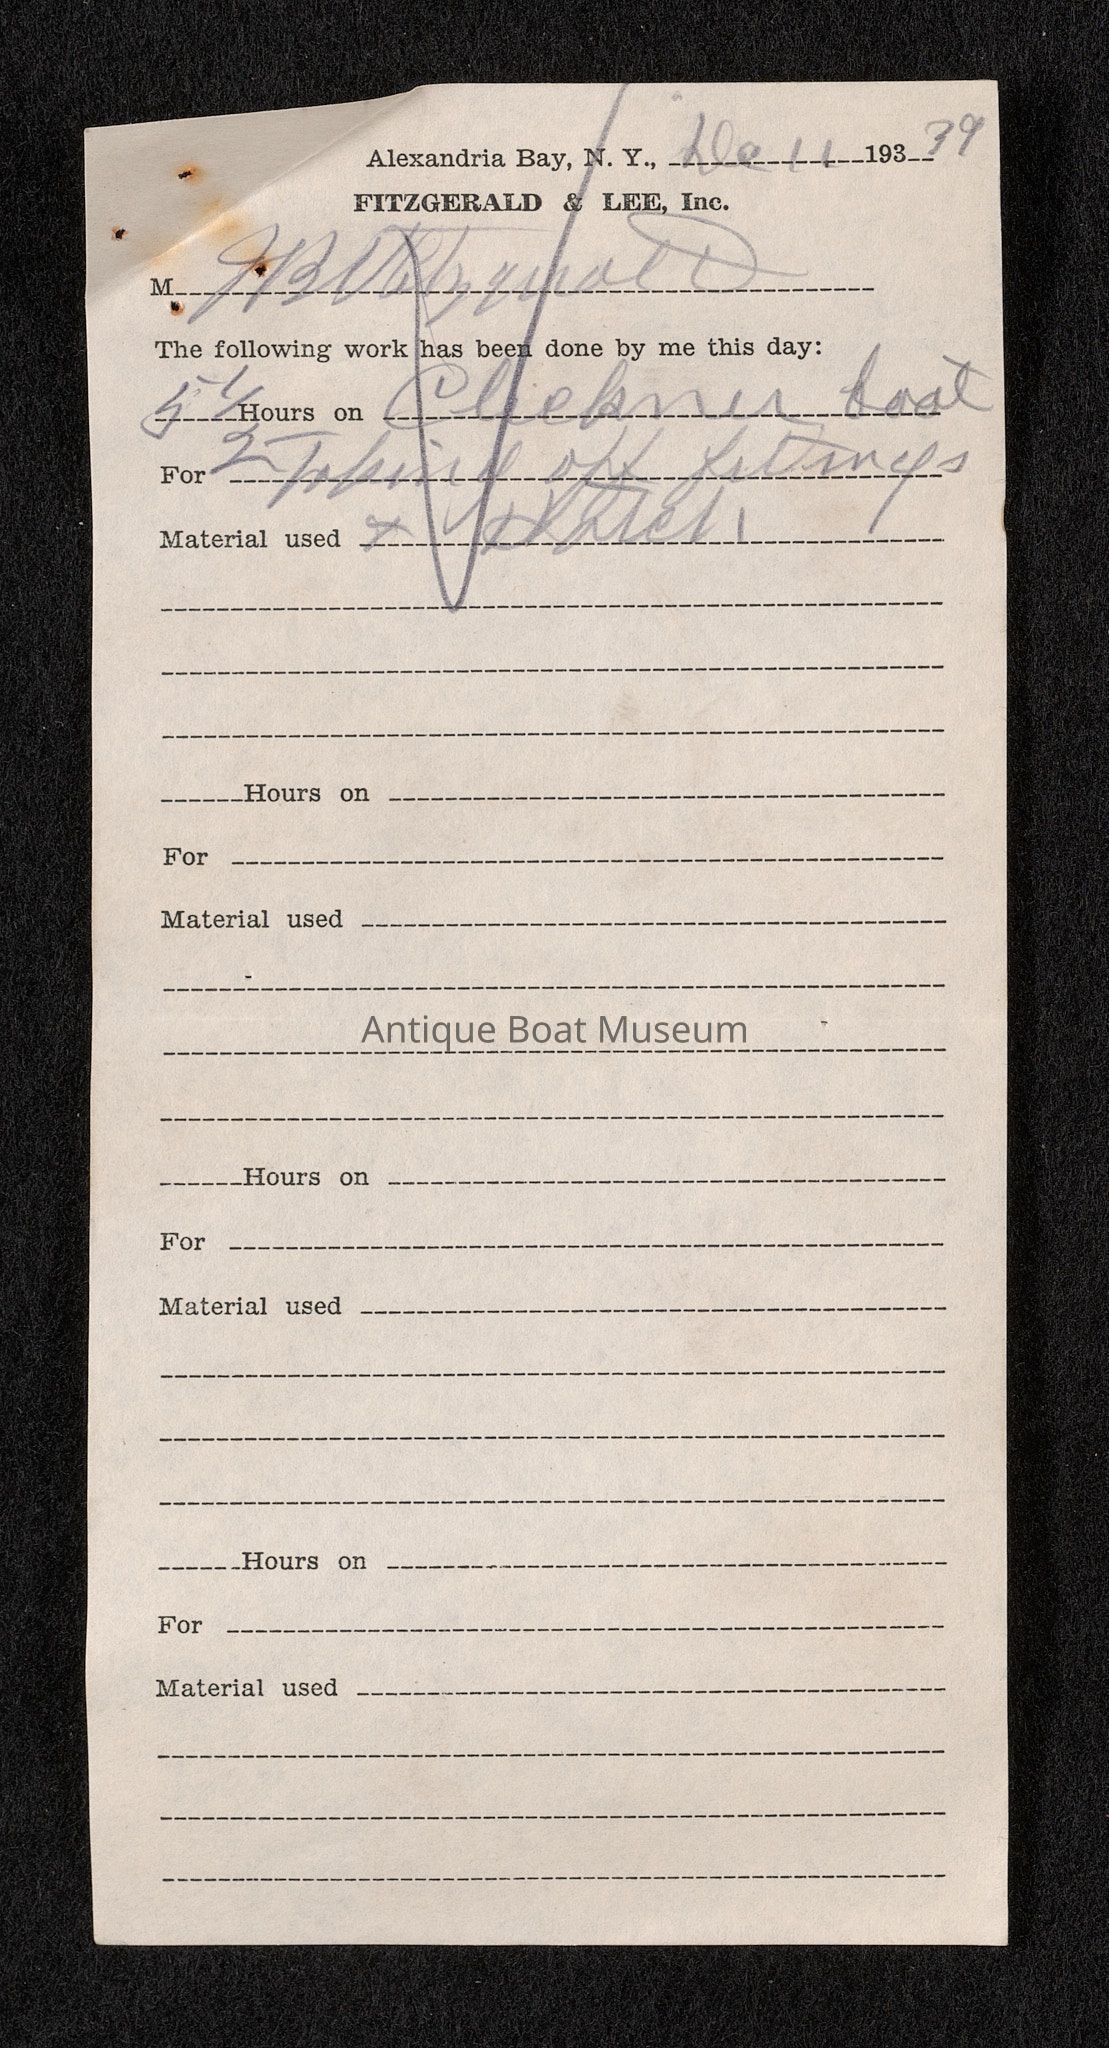 Alexandria Bay, N. Y., De 11 193 39
FITZGERALD & LEE, Inc.
M
The following work has been done by me this day:
5 1/2 Hours on Clickner boat
For off fittings
Material used +
Hours on
For
Material used
Antique Boat Museum
Hours on
For
Material used
Hours on
For
Material used